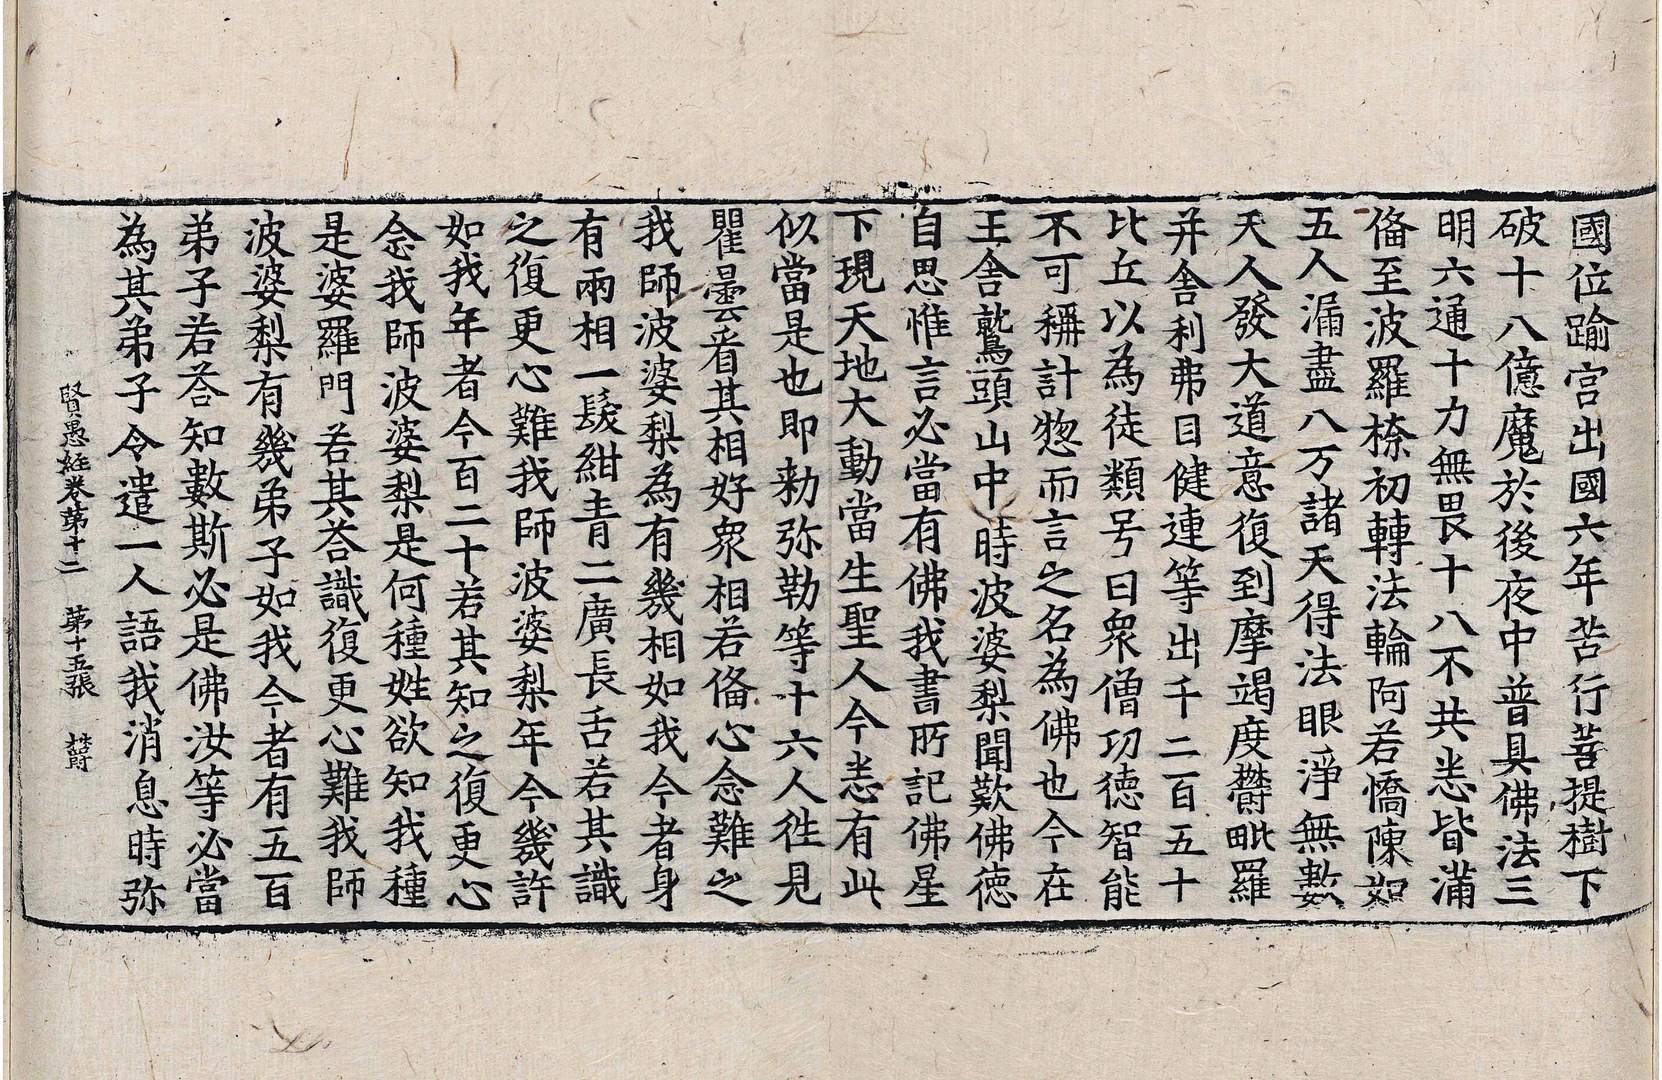 國位踰宮出國六年苦行菩提樹下
破十八億魔於後夜中普具佛法三
明六通十力無畏十八不共悉皆滿
俻至波羅㮈初轉法輪阿若憍陳如
五人漏盡八万諸天得法眼淨無數
天人發大道意復到摩竭度欝毗羅
并舍利弗目健連等出千二百五十
比丘以為徒類号曰衆僧功德智能
不可稱計惣而言之名為佛也今在
王舍鷲頭山中時波婆梨聞歎佛德
自思惟言必當有佛我書所記佛星
下現天地大動當生聖人今悉有此
似當是也即勑弥勒等十六人徃見
瞿曇看其相好衆相若俻心念難之
我師波婆梨為有幾相如我今者身
有兩相一髮紺青二廣長舌若其識
之復更心難我師波婆梨年今幾許
如我年者今百二十若其知之復更心
念我師波婆梨是何種姓欲知我種
是婆羅門若其荅識復更心難我師
波婆梨有幾弟子如我今者有五百
弟子若荅知數斯必是佛汝等必當
為其弟子令遣一人語我消息時弥
賢愚經卷第十二 第十五張 欝